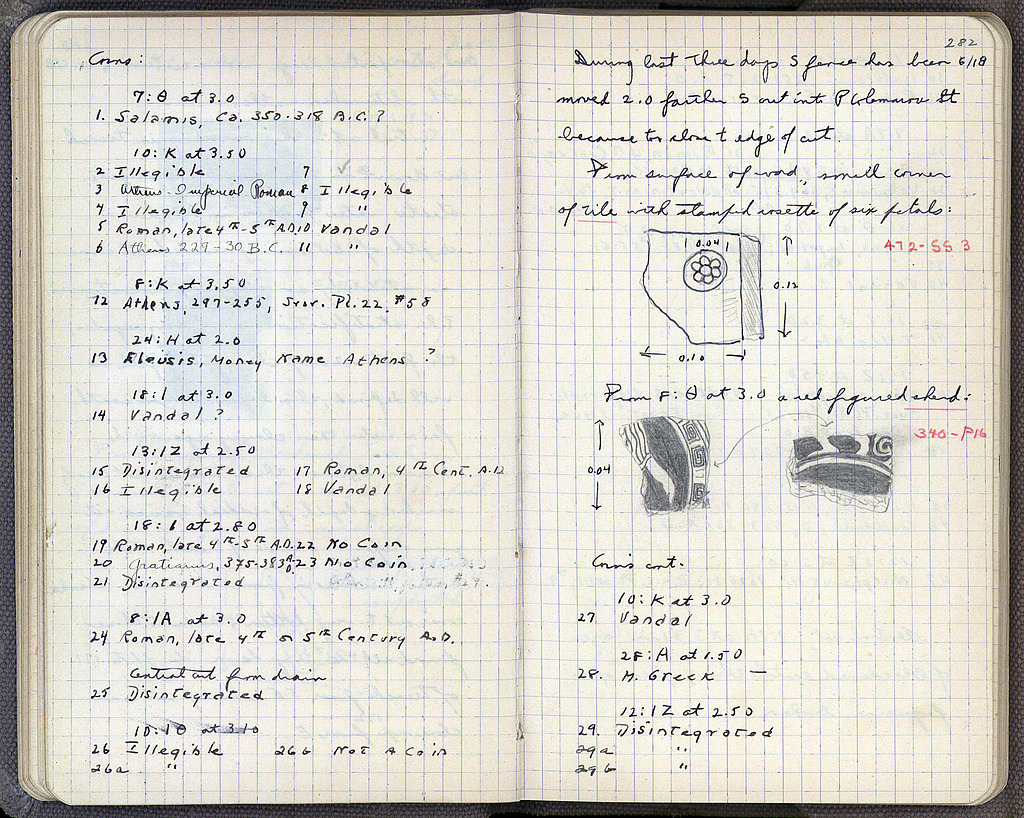 Coins:
7:Θ at 3.0
1. Salamis, Ca. 350-318 B.C.?
10:K at 3.50
2 Illegible 7
3 Athens Imperial Roman 8 Illegible
4 Illegible 9 "
5 Roman, late 4th-5th A.D. 10 Vandal
6 Athens 229-30 B.C. 11 "
8:K at 3.50
12 Athens, 297-255, Svor. Pl. 22, #58
24:H at 2.0
13 Eleusis, Money Name Athens ?
18:1 at 3.0
14 Vandal ?
13:IZ at 2.50
15 Disintegrated 17 Roman, 4th Cent. A.D.
16 Illegible 18 Vandal
18:1 at 2.80
19 Roman, late 4th-5th A.D. 22 No Coin
20 Gratianus, 375-383 A.D. 23 No Coin
21 Disintegrated
8:IA at 3.0
24 Roman, late 4th or 5th Century A.D.
from drain
25 Disintegrated
10:IΘ at 3.10
26 Illegible 26b Not A Coin
26a "
282
During last three days S fence has been 6/18
moved 2.0 farther S out into Ptolemaion St
because too close to edge of cut.
From surface of road, small corner
of tile with stamped rosette of six petals:
A72-SS 3
0.04
0.12
0.10
From F:Θ at 3.0 a red figured sherd:
340-P16
0.04
Coins cont.
10:K at 3.0
27. Vandal
28:A at 1.50
28. M. Greek —
12:IZ at 2.50
29. Disintegrated
29a "
29b "